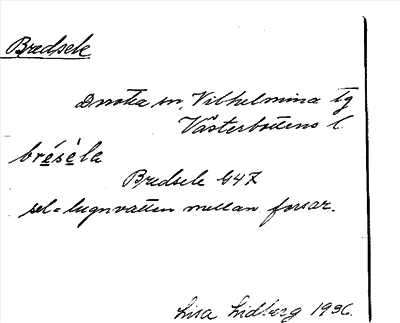 Bredsele
Dorotea sn, Vilhelmina tg
Västerbottens l.
brésèla
Bredsele G47
sel = lugnvatten mellan forsar.
Lisa Lidberg 1936.